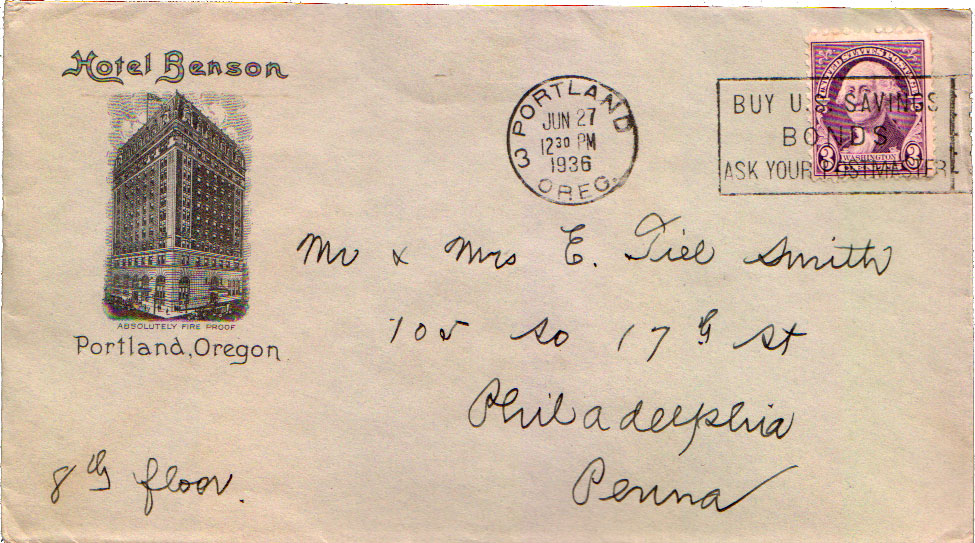 Hotel Benson
ABSOLUTELY FIRE PROOF
Portland, Oregon
PORTLAND
JUN 27
12 30 PM
1936
3
OREG.
BUY U.S. SAVINGS
BONDS
ASK YOUR POSTMASTER
UNITED STATES POSTAGE
3 WASHINGTON 3
Mr & Mrs E. Tiel Smith
105 So 17th St
Philadelphia
Penna
8th floor.